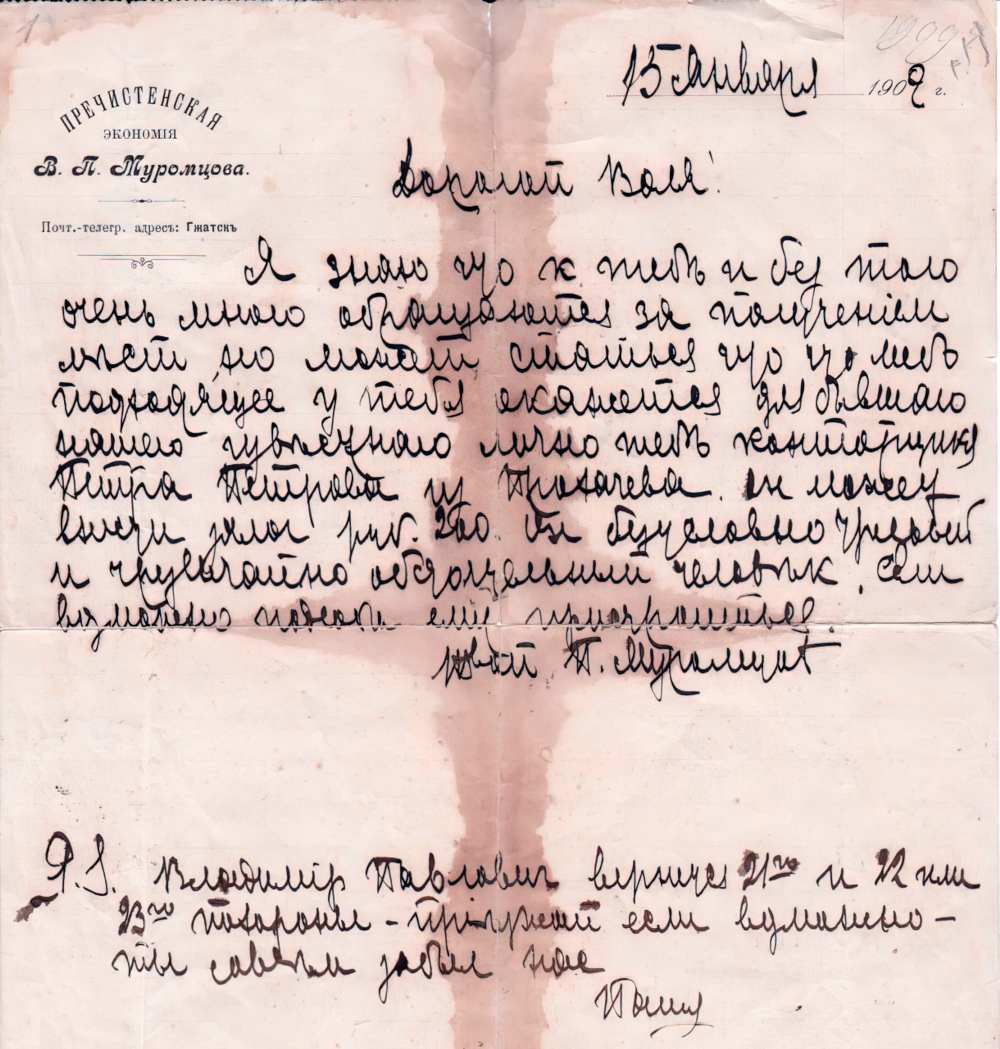 1
1909 г.
15 Января 1909 г.
ПРЕЧИСТЕНСКАЯ
ЭКОНОМІЯ
В. П. Муромцова.
Почт.-телегр. адресъ: Гжатскъ
Дорогой Воля!
Я знаю что к тебѣ и без того
очень много обращаются за полученіем
мѣст но может статься что что либ
подходящее у тебя окажется для бывшаго
нашего извѣстнаго лично тебѣ конторщика
Петра Петрова из Трохачева. Он может
внести залог руб. 200. Он безусловно
и чрезвычайно обязательный человѣк. Если
возможно ему пристроиться.
твой П. Муромцов
P.S. Владимір Павлович вернется 21го и 22 или
23го похороны – пріезжай если возможно –
ты совсѣм забыл нас
Паша